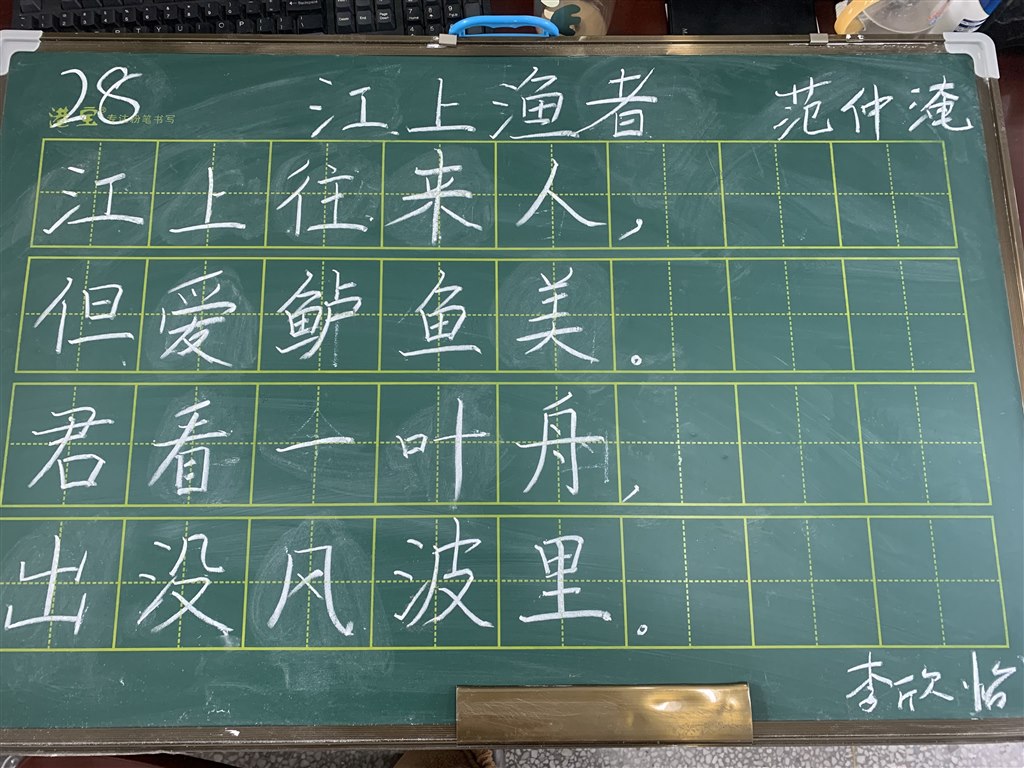 28 江上渔者 范仲淹
港宝 专注粉笔书写
江上往来人,
但爱鲈鱼美。
君看一叶舟,
出没风波里。
李欣怡